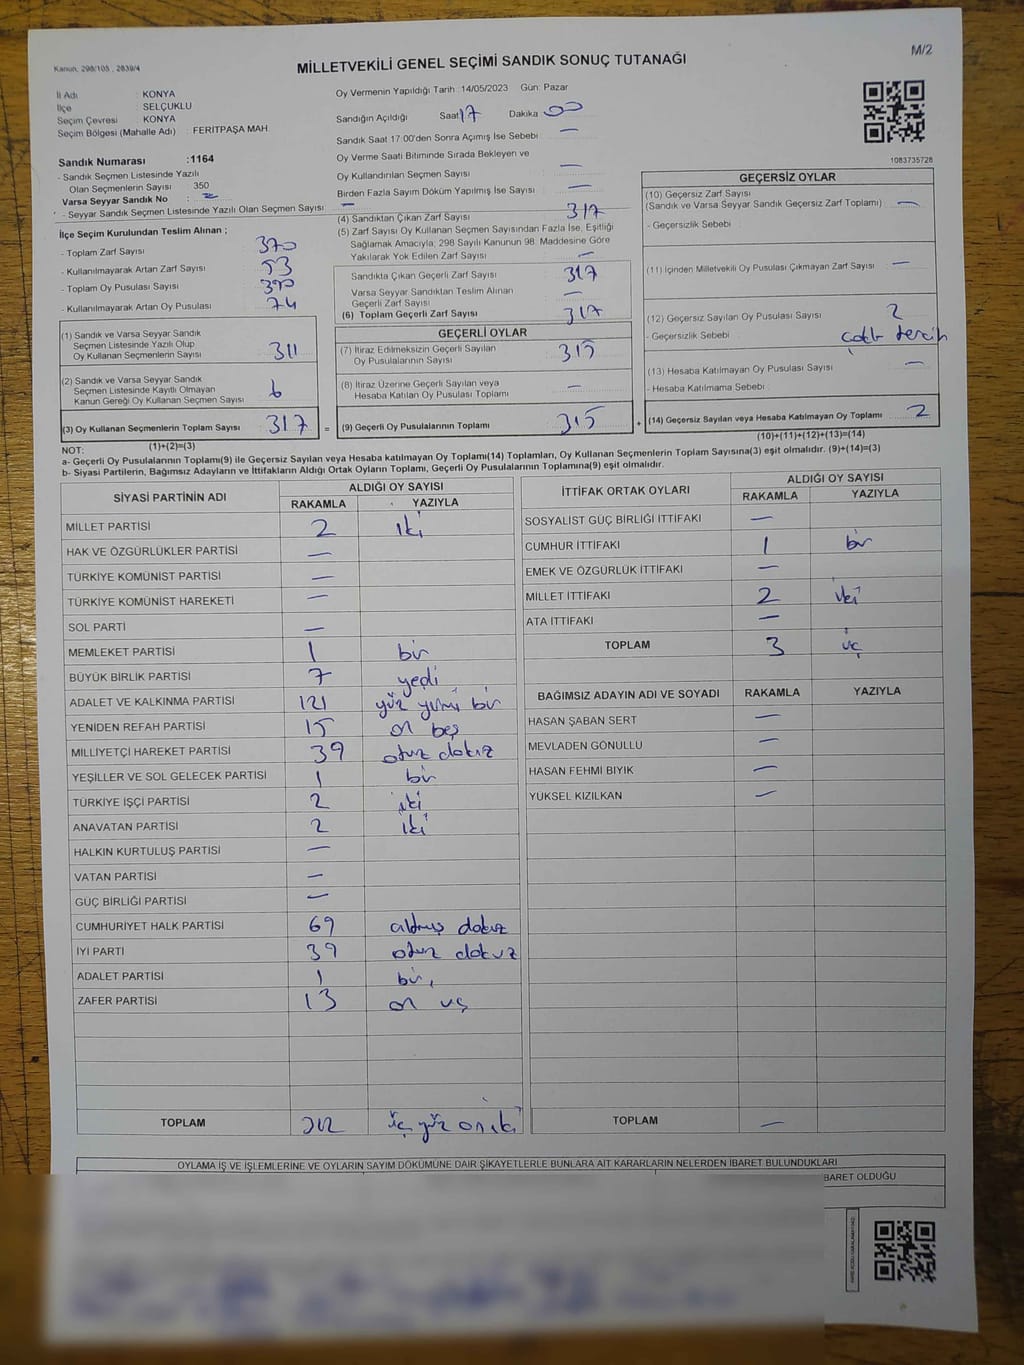 Kanun, 298/105 , 2839/4
M/2
MİLLETVEKİLİ GENEL SEÇİMİ SANDIK SONUÇ TUTANAĞI
İl Adı : KONYA
İlçe : SELÇUKLU
Seçim Çevresi : KONYA
Seçim Bölgesi (Mahalle Adı) : FERİTPAŞA MAH
Sandık Numarası :1164
- Sandık Seçmen Listesinde Yazılı
Olan Seçmenlerin Sayısı 350
Varsa Seyyar Sandık No :
- Seyyar Sandık Seçmen Listesinde Yazılı Olan Seçmen Sayısı : —
Oy Vermenin Yapıldığı Tarih : 14/05/2023 Gün: Pazar
Sandığın Açıldığı Saat 17 Dakika 00
Sandık Saat 17:00'den Sonra Açımış İse Sebebi : —
Oy Verme Saati Bitiminde Sırada Bekleyen ve
Oy Kullandırılan Seçmen Sayısı —
Birden Fazla Sayım Döküm Yapılmış İse Sayısı : —
1083735728
İlçe Seçim Kurulundan Teslim Alınan ;
- Toplam Zarf Sayısı : 370
- Kullanılmayarak Artan Zarf Sayısı : 53
- Toplam Oy Pusulası Sayısı : 390
- Kullanılmayarak Artan Oy Pusulası : 74
(1) Sandık ve Varsa Seyyar Sandık
Seçmen Listesinde Yazılı Olup
Oy Kullanan Seçmenlerin Sayısı 311
(2) Sandık ve Varsa Seyyar Sandık
Seçmen Listesinde Kayıtlı Olmayan
Kanun Gereği Oy Kullanan Seçmen Sayısı 6
(3) Oy Kullanan Seçmenlerin Toplam Sayısı 317
(1)+(2)=(3)
(4) Sandıktan Çıkan Zarf Sayısı 317
(5) Zarf Sayısı Oy Kullanan Seçmen Sayısından Fazla İse, Eşitliği
Sağlamak Amacıyla, 298 Sayılı Kanunun 98. Maddesine Göre
Yakılarak Yok Edilen Zarf Sayısı : —
Sandıkta Çıkan Geçerli Zarf Sayısı 317
Varsa Seyyar Sandıktan Teslim Alınan
Geçerli Zarf Sayısı —
(6) Toplam Geçerli Zarf Sayısı : 317
GEÇERLİ OYLAR
(7) İtiraz Edilmeksizin Geçerli Sayılan
Oy Pusulalarının Sayısı : 315
(8) İtiraz Üzerine Geçerli Sayılan veya
Hesaba Katılan Oy Pusulası Toplamı : —
= (9) Geçerli Oy Pusulalarının Toplamı : 315
GEÇERSİZ OYLAR
(10) Geçersiz Zarf Sayısı
(Sandık ve Varsa Seyyar Sandık Geçersiz Zarf Toplamı) : —
- Geçersizlik Sebebi :
(11) İçinden Milletvekili Oy Pusulası Çıkmayan Zarf Sayısı : —
(12) Geçersiz Sayılan Oy Pusulası Sayısı : 2
- Geçersizlik Sebebi : tercih
(13) Hesaba Katılmayan Oy Pusulası Sayısı : —
- Hesaba Katılmama Sebebi :
+ (14) Geçersiz Sayılan veya Hesaba Katılmayan Oy Toplamı : 2
(10)+(11)+(12)+(13)=(14)
NOT:
a- Geçerli Oy Pusulalarının Toplamı(9) ile Geçersiz Sayılan veya Hesaba katılmayan Oy Toplamı(14) Toplamları, Oy Kullanan Seçmenlerin Toplam Sayısına(3) eşit olmalıdır. (9)+(14)=(3)
b- Siyasi Partilerin, Bağımsız Adayların ve İttifakların Aldığı Ortak Oyların Toplamı, Geçerli Oy Pusulalarının Toplamına(9) eşit olmalıdır.
SİYASİ PARTİNİN ADI ALDIĞI OY SAYISI
RAKAMLA YAZIYLA
MİLLET PARTİSİ 2 iki
HAK VE ÖZGÜRLÜKLER PARTİSİ —
TÜRKİYE KOMÜNİST PARTİSİ —
TÜRKİYE KOMÜNİST HAREKETİ —
SOL PARTİ —
MEMLEKET PARTİSİ 1 bir
BÜYÜK BİRLİK PARTİSİ 7 yedi
ADALET VE KALKINMA PARTİSİ 121 yüz yirmi bir
YENİDEN REFAH PARTİSİ 15 on beş
MİLLİYETÇİ HAREKET PARTİSİ 39 otuz dokuz
YEŞİLLER VE SOL GELECEK PARTİSİ 1 bir
TÜRKİYE İŞÇİ PARTİSİ 2 iki
ANAVATAN PARTİSİ 2 iki
HALKIN KURTULUŞ PARTİSİ —
VATAN PARTİSİ —
GÜÇ BİRLİĞİ PARTİSİ —
CUMHURİYET HALK PARTİSİ 69 altmış dokuz
İYİ PARTİ 39 otuz dokuz
ADALET PARTİSİ 1 bir
ZAFER PARTİSİ 13 on üç
TOPLAM 312 üç yüz on iki
İTTİFAK ORTAK OYLARI ALDIĞI OY SAYISI
RAKAMLA YAZIYLA
SOSYALİST GÜÇ BİRLİĞİ İTTİFAKI —
CUMHUR İTTİFAKI 1 bir
EMEK VE ÖZGÜRLÜK İTTİFAKI —
MİLLET İTTİFAKI 2 iki
ATA İTTİFAKI —
TOPLAM 3 üç
BAĞIMSIZ ADAYIN ADI VE SOYADI RAKAMLA YAZIYLA
HASAN ŞABAN SERT —
MEVLADEN GÖNULLU —
HASAN FEHMİ BIYIK —
YÜKSEL KIZILKAN —
TOPLAM —
OYLAMA İŞ VE İŞLEMLERİNE VE OYLARIN SAYIM DÖKÜMÜNE DAİR ŞİKAYETLERLE BUNLARA AİT KARARLARIN NELERDEN İBARET BULUNDUKLARI
BARET OLDUĞU